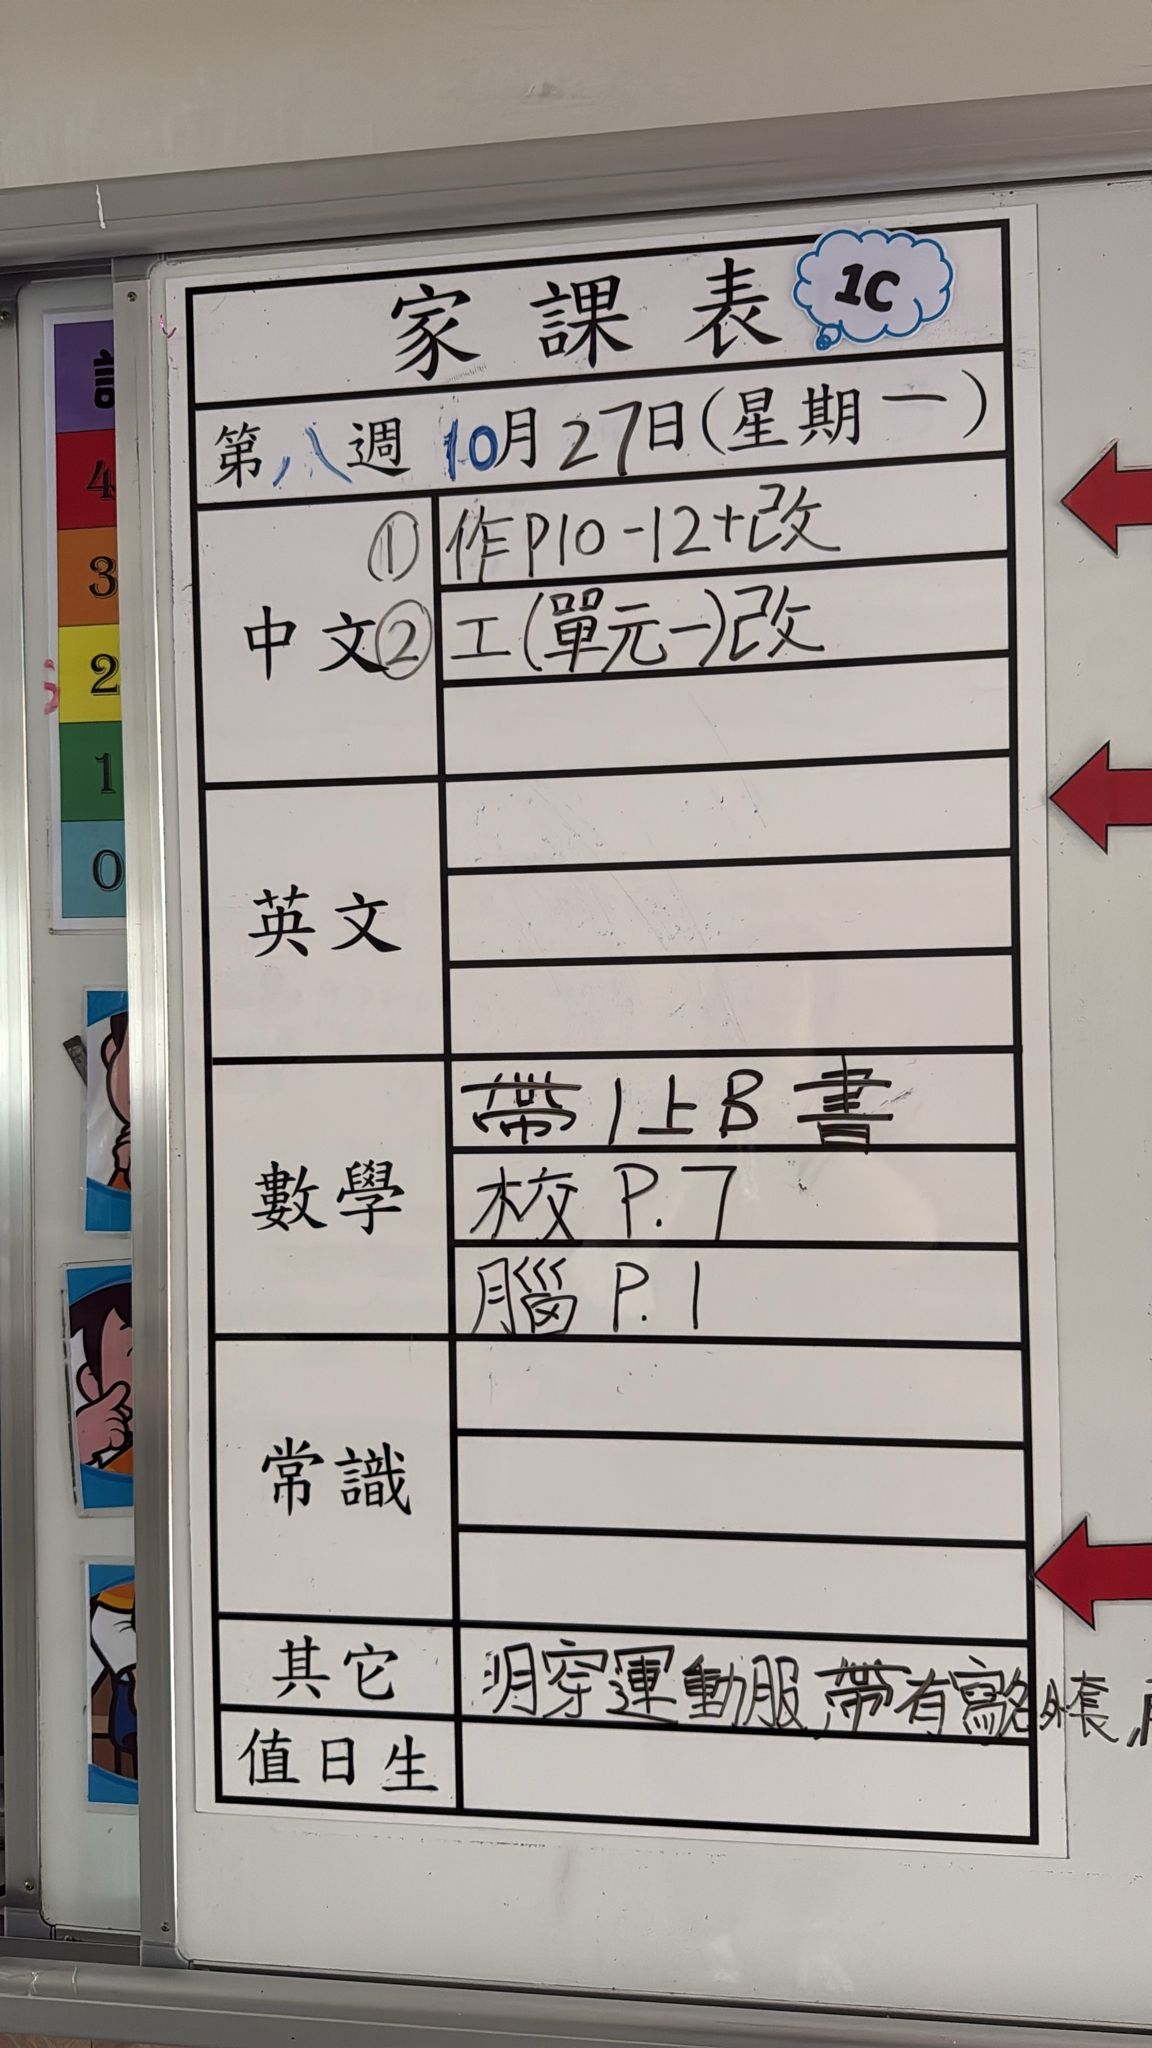 家課表 1C
第八週 10月27日(星期一)
中文
① 作P10-12+改
② 工(單元一)改
英文
數學
帶1上B書
校 P.7
腦 P.1
常識
其它
明穿運動服 帶有寫名外套,
值日生
4
3
2
1
0